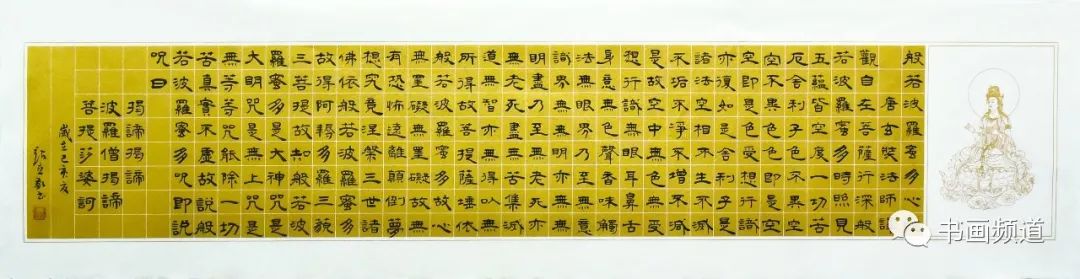 般若波羅蜜多心經
唐玄奘法師譯
觀自在菩薩行深般
若波羅蜜多時照見
五蘊皆空度一切苦
厄舍利子色不異空
空不異色色即是空
空即是色受想行識
亦復如是舍利子是
諸法空相不生不滅
不垢不淨不增不減
是故空中無色無受
想行識無眼耳鼻舌
身意無色聲香味觸
法無眼界乃至無意
識界無無明亦無無
明盡乃至無老死亦
無老死盡無苦集滅
道無智亦無得以無
所得故菩提薩埵依
般若波羅蜜多故心
無罣礙無罣礙故無
有恐怖遠離顛倒夢
想究竟涅槃三世諸
佛依般若波羅蜜多
故得阿耨多羅三藐
三菩提故知般若波
羅蜜多是大神咒是
大明咒是無上咒是
無等等咒能除一切
苦真實不虛故說般
若波羅蜜多咒即說
咒曰
揭諦揭諦
波羅僧揭諦
菩提莎婆訶
歲在己亥
书画频道